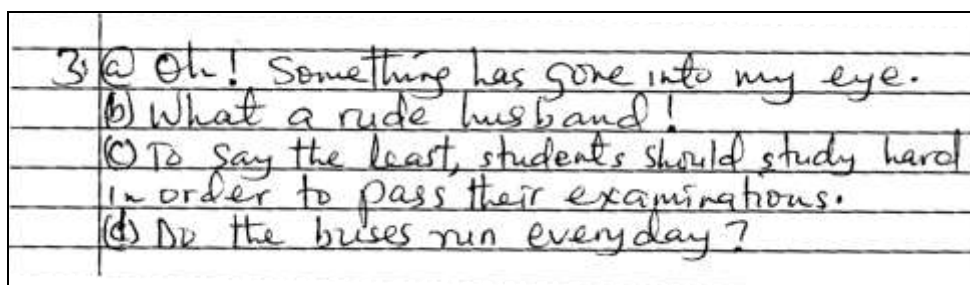 3. (a) Oh! Something has gone into my eye.
(b) What a rude husband!
(c) To say the least, students should study hard
in order to pass their examinations.
(d) Do the buses run everyday?